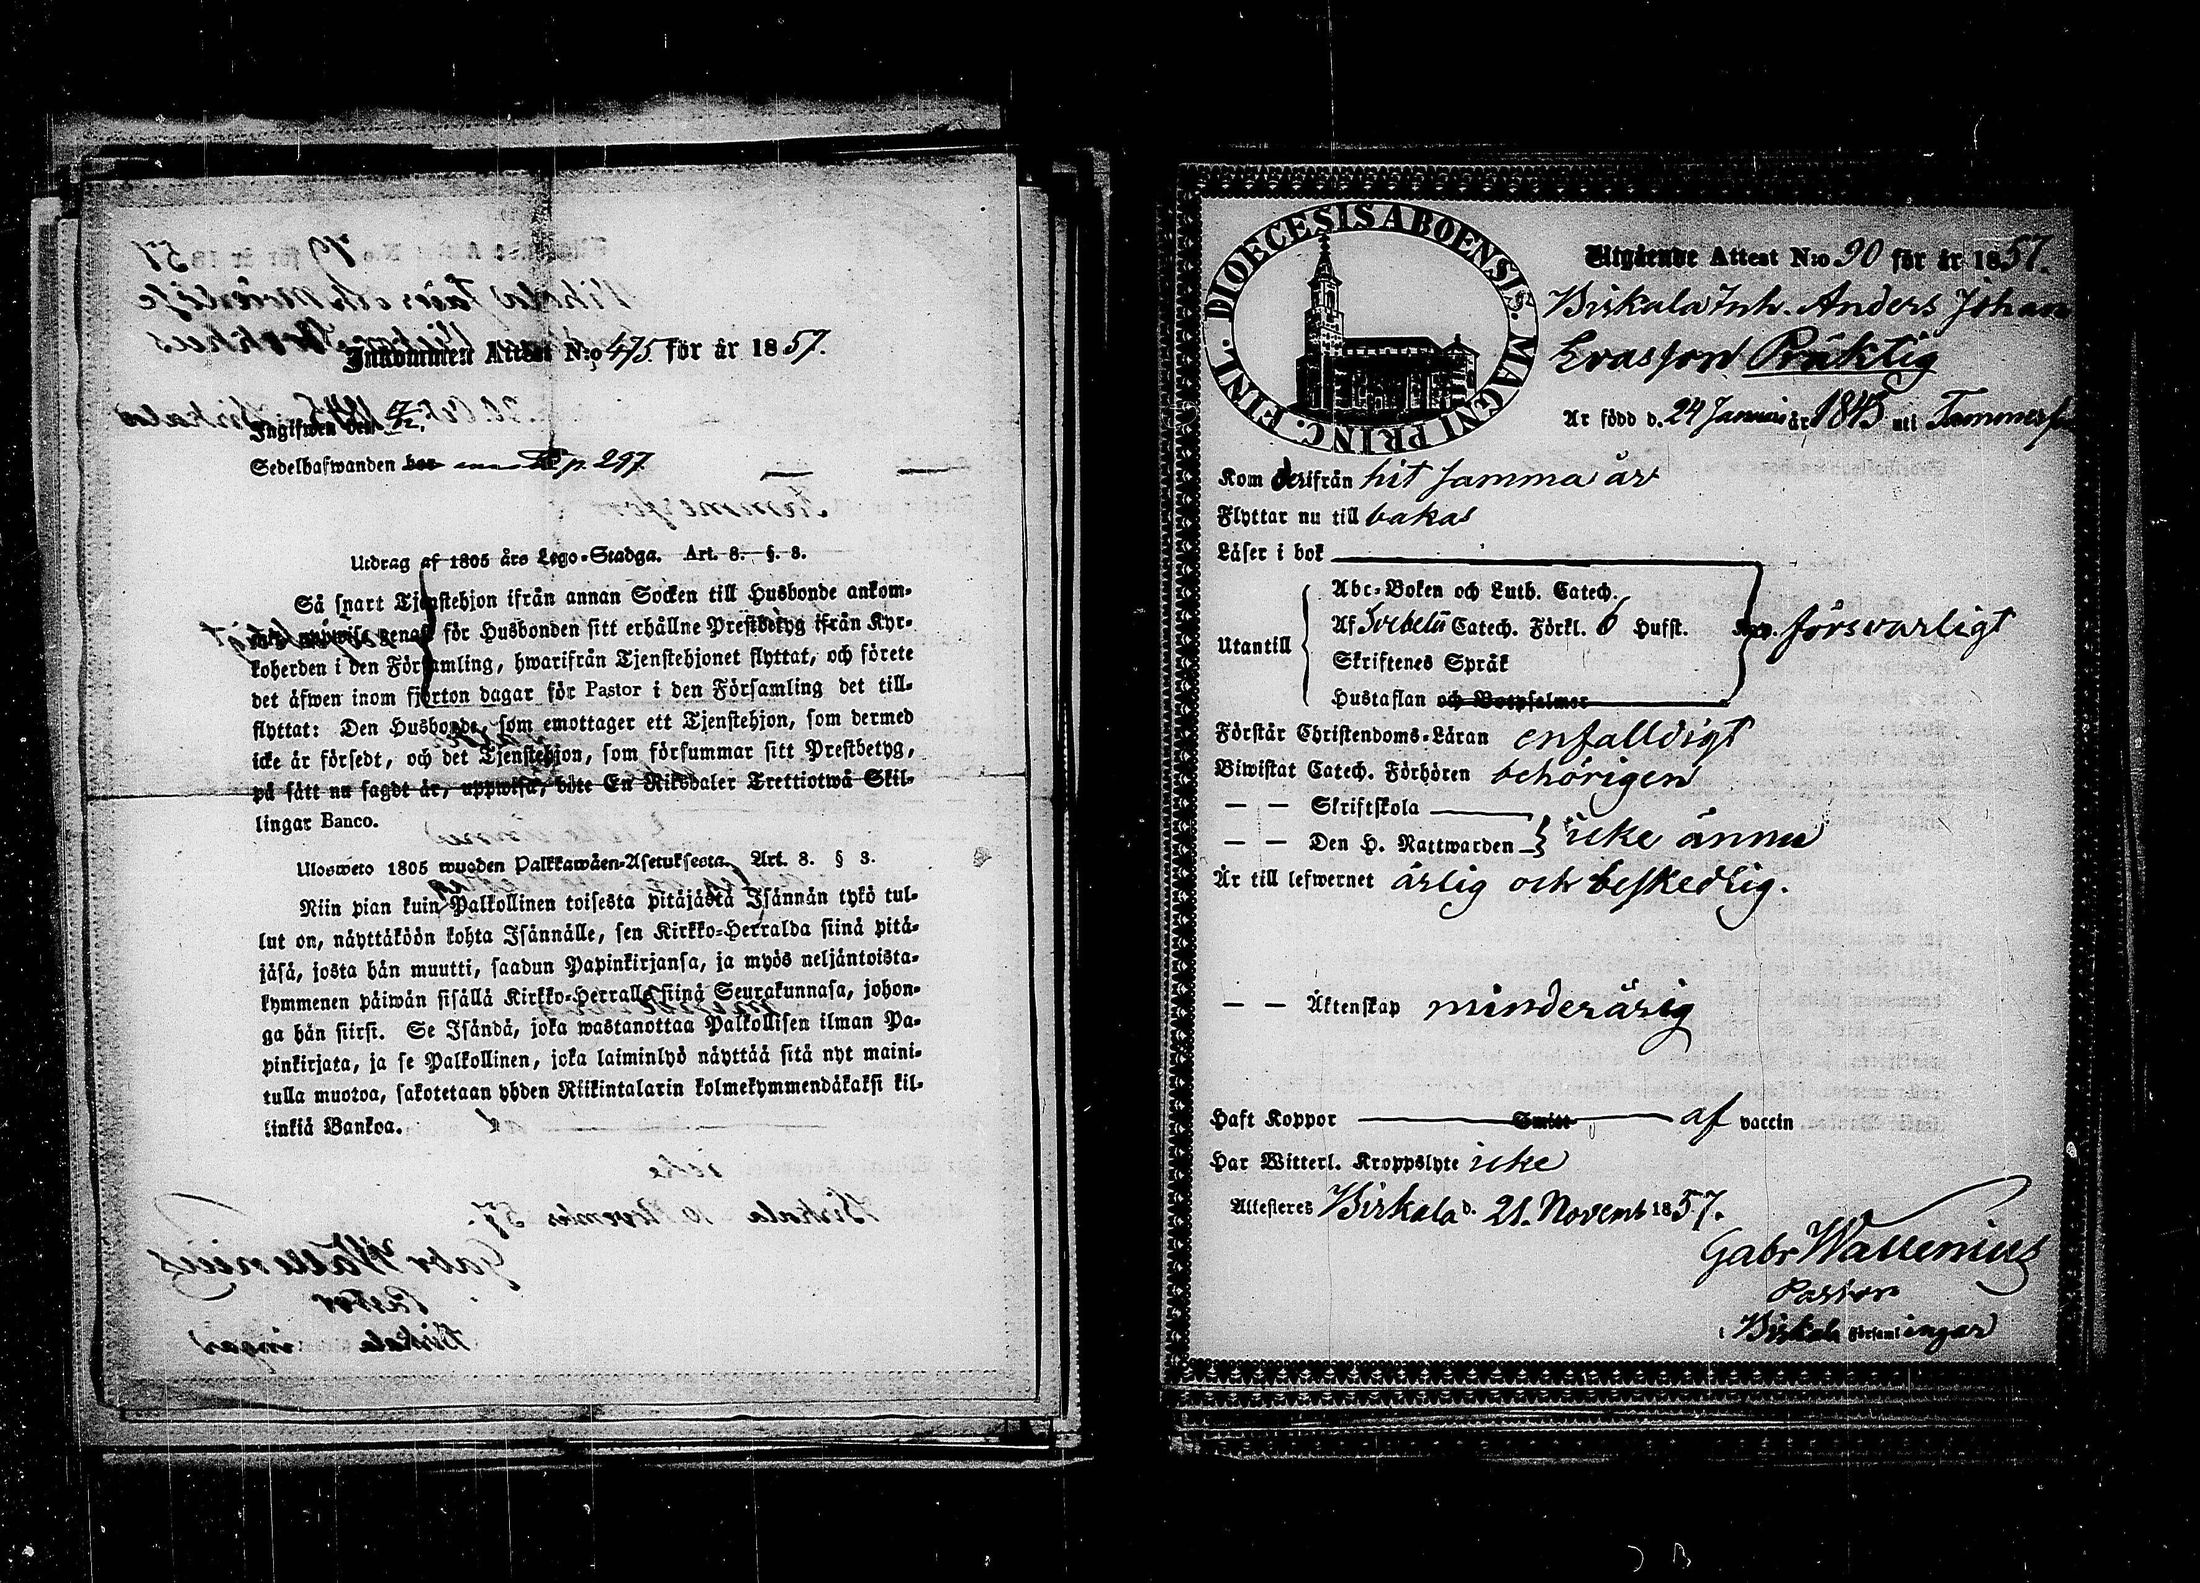 Inkommen Attest N:o 475 för år 1857.
Ingifwen den
Sedelhafwanden har p. 297.
Utdrag af 1805 års Lego-Stadga. Art. 8. §. 8.
Så snart Tjenstehjon ifrån annan Socken till Husbonde ankom-
mit, uppwise genast för Husbonden sitt erhållne Prestbetyg ifrån Kyr-
koherden i den Församling, hwarifrån Tjenstehjonet flyttat, och förete
det äfwen inom fjorton dagar för Pastor i den Församling det till-
flyttat: Den Husbonde, som emottager ett Tjenstehjon, som dermed
icke är försedt, och det Tjenstehjon, som försummar sitt Prestbetyg,
på sätt nu sagdt är, uppwisa, böte En Riksdaler Trettiotwå Skil-
lingar Banco.
Ulosweto 1805 wuoden Palkkawäen-Asetuksesta. Art. 8. § 8.
Niin pian kuin Palkollinen toisesta pitäjästä Isännän tykö tul-
lut on, näyttäköön kohta Isännälle, sen Kirkko-Herralda siinä pitä-
jäsä, josta hän muutti, saadun Papinkirjansa, ja myös neljäntoista-
kymmenen päiwän sisällä Kirkko-Herralle siinä Seurakunnasa, johon-
ga hän siirsi. Se Isändä, joka wastanottaa Palkollisen ilman Pa-
pinkirjata, ja se Palkollinen, joka laiminlyö näyttää sitä nyt maini-
tulla muotoa, sakotetaan yhden Riikintalarin kolmekymmendäkaksi kil-
linkiä Bankoa.
DIOECESIS ABOENSIS. MAGNI PRINC. FINL.
Utgående Attest N:o 90 för år 1857.
Birkala Inh. Anders Johan
Evasson Präktig
Är född d. 24 Januari år 1845 uti Tammerfo
Kom derifrån hit samma år
Flyttar nu till bakas
Läser i bok
Abc-Boken och Luth. Catech.
Af Svebelii Catech. Förkl. 6 Hufst. försvarligt
Utantill
Skriftenes Språk
Hustaflan och Botpsalmer
Förstår Christendoms-Läran enfalldigt
Biwistat Catech. Förhören behörigen
— — Skriftskola
— — Den H. Nattwarden icke ännu
Är till lefwernet ärlig och beskedlig.
— — Äktenskap minderårig
Haft Koppor Smitt af vaccin
Har Witterl. Kroppslyte icke
Attesteres Birkala d. 21. Novemb 1857.
Gabr Wallenius
Pastor
i Birkala Församlingar